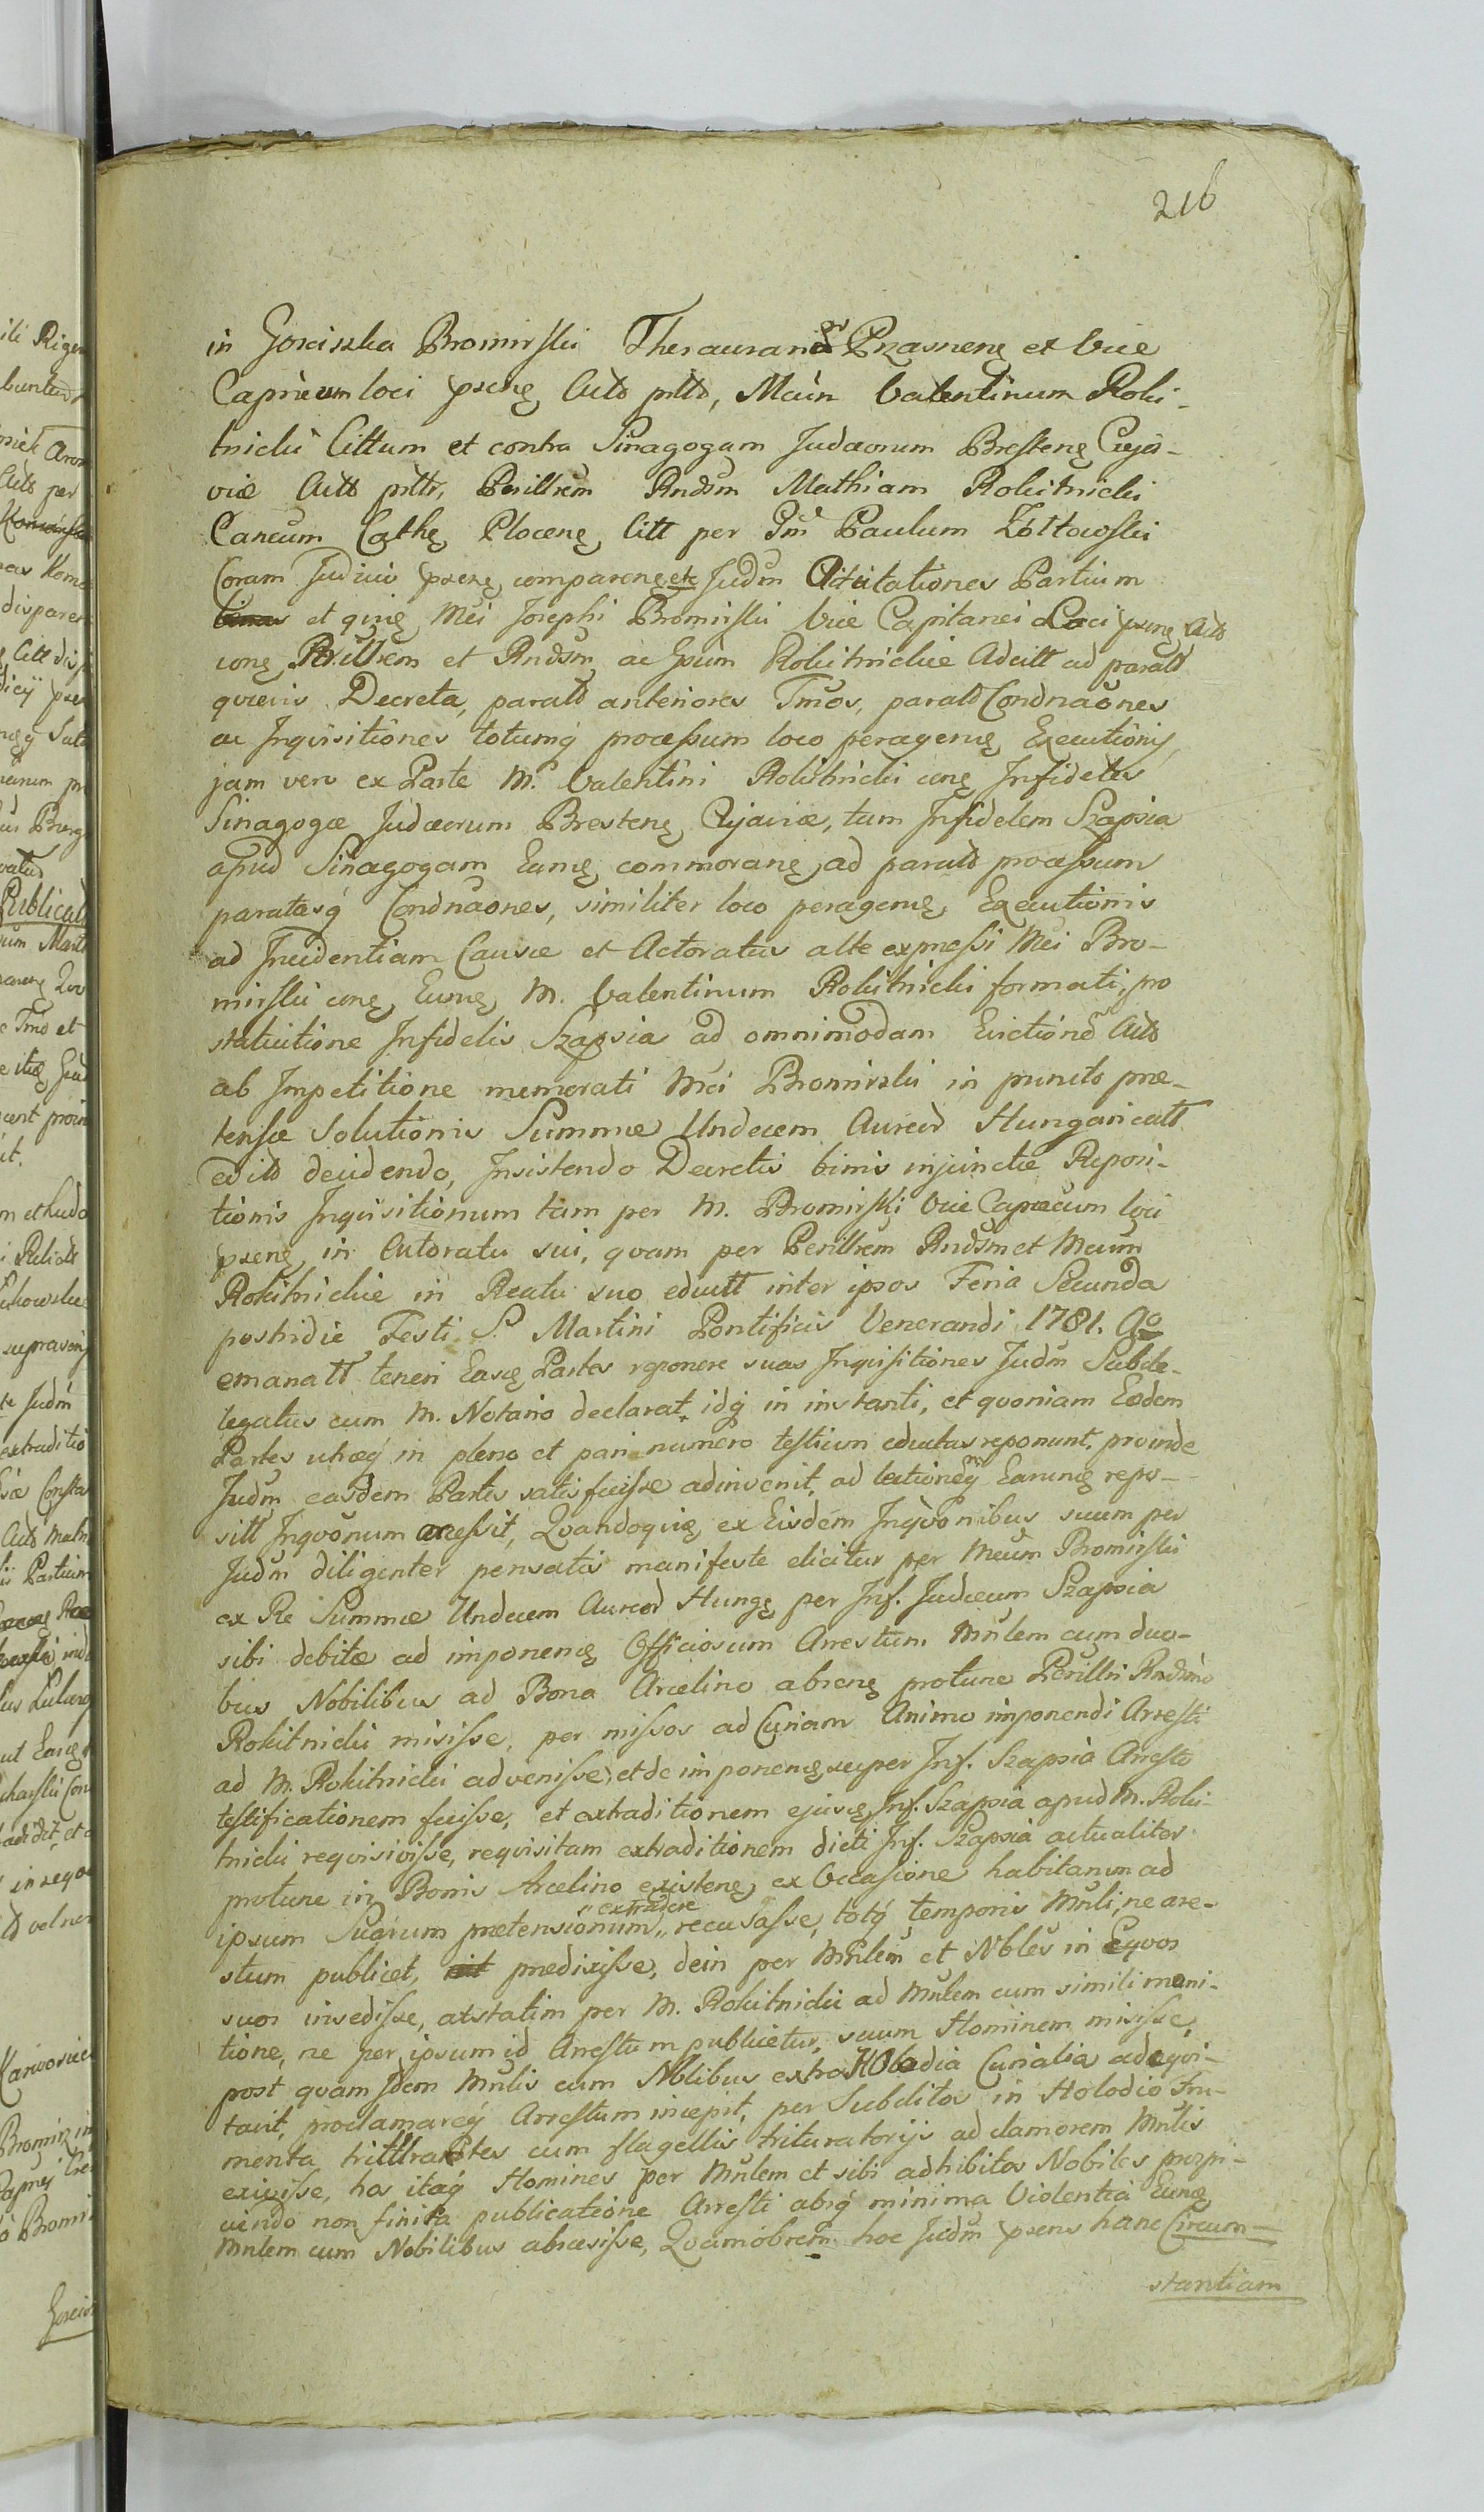 216
in Gosciszka Bromirski Thesaurari Przasnens et Vice
Capneum loci psens Actt prtt, Mcum Valentinum Roki-
tnicki Cittum et contra Sinagogam Judæorum Brestens Cuja-
viæ Actt prtt, Perillrem Rndsm Mathiam Rokitnicki
Caneum Cathe Plocens, Citt per Gm Paulum Żółtowski
Coram Judicio psens comparens etc Judm Citationes Partium
et quiq Mci Josephi Bromirski Vice Capitanei Loci psens Act
cons Perillrem et Rndsm ac Gsum Rokitnickie Adcitt ad paratt
quævis Decreta, paratt anteriores Tmos, paratt Condnaones
ac Inquisitiones totumq processum loco peragens Executionis,
jam vero ex Parte M. Valentini Rokitnicki cons Infideles
Sinagogæ Judæorum Brestens Cujaviæ, tum Infidelem Szapsia
apud Sinagogam Eams commorans, ad paratt processum
paratasq Condnaones, similiter loco peragens Executionis
ad Incidentiam Causæ et Actoratus alte expressi Mci Bro-
mirski cons Eums M. Valentinum Rokitnicki formati, pro
statuitione Infidelis Szapsia ad omnimodam Evictione Actt
ab Impetitione memorati Mci Bromirski in puncto præ-
tensæ Solutionis Summæ Undecem Aureor Hungaricatt
edito decidendo, Insistendo Decretis binis injunctæ Reposi-
tionis Inquisitionum tam per M. Bromirski Vice Capneum loci
psens in Actoratu sui, quam per Perillrem Rndsm et Mcum
Rokitnickie in Reatu suo eductt inter ipsos Feria Secunda
postridie Festi S. Martini Pontificis Venerandi 1781. Ao
emanatt teneri Easq Partes reponere suas Inquisitiones Judm Subde-
legatus cum M. Notario declarat, idq in instanti, et quoniam Eædem
Partes utræq in pleno et pari numero testium eductas reponunt, proinde
Judm easdem Partes satisfecisse adinvenit, ad lectioneq Earums repo-
sitt Inqvonum accessit, Quandoquiq ex Eisdem Inqvonibus suum per
Judm diligenter pensatis manifeste elicitur per Mcum Bromirski
ex Re Summæ Undecem Aureor Hungs per Inf. Judæum Szapsia
sibi debitæ ad imponens Officiosum Arestum Mnlem cum duo-
bus Nobilibus ad Bona Arcelino absens protunc Perillri Rndmo
Rokitnicki misisse, per missos ad Curiam Animo imponendi Aresti
ad M. Rokitnicki advenisse, et de imponens super Inf. Szapsia Aresto
testificationem fuisse, et extraditionem ejusq Inf. Szapsia apud M. Roki-
tnicki requisivisse, requisitam extraditionem dicti Inf. Szapsia actualiter
protunc in Bonis Arcelino existens, ex Occasione habitarum ad
ipsum Suarum prætensionum „extradere„ recusasse, totq temporis Mnli, ne are-
stum publicet, prædixisse, dein per Mnlem et Nbles in Equos
suos insedisse, atstatim per M. Rokitnicki ad Mnlem cum simili moni-
tione, ne per ipsum id Arestum publicetur, suum Hominem misisse,
post quam Idem Mnlis cum Nblibus extra Holodia Curialia adequi-
tavit, proclamareq Arestum incepit, per Subditos in Holodio Fru-
menta tritturantes cum flagellis trituratorijs ad clamorem Mnlis
exivisse, hos itaq Homines per Mnlem et sibi adhibitos Nobiles prospi-
ciendo non finita publicatione Aresti absq minima Violentia Eums
Mnlem cum Nobilibus abcessisse, Quamobrem hoc Judm psens hanc Circum-
stantiam